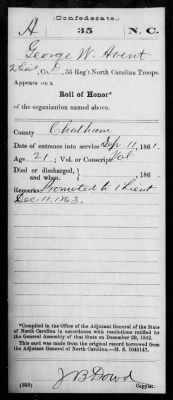 Confederate.
A 35 N.C.
George W. Avent
2 Lieut, Co. , 35 Reg't North Carolina Troops.
Appears on a
Roll of Honor*
of the organization named above.
County Chatham
Date of entrance into service Sep. 11, 1861.
Age 21; Vol. or Conscript Vol.
Died or discharged, and when , 186 .
Remarks: Promoted to 1 Lieut
Dec. 11, 1863.
*Compiled in the Office of the Adjutant General of the State
of North Carolina in accordance with resolutions ratified by
the General Assembly of that State on December 20, 1862.
This card was made from the original record borrowed from
the Adjutant General of North Carolina.—M. S.
J B Dowd
Copyist.